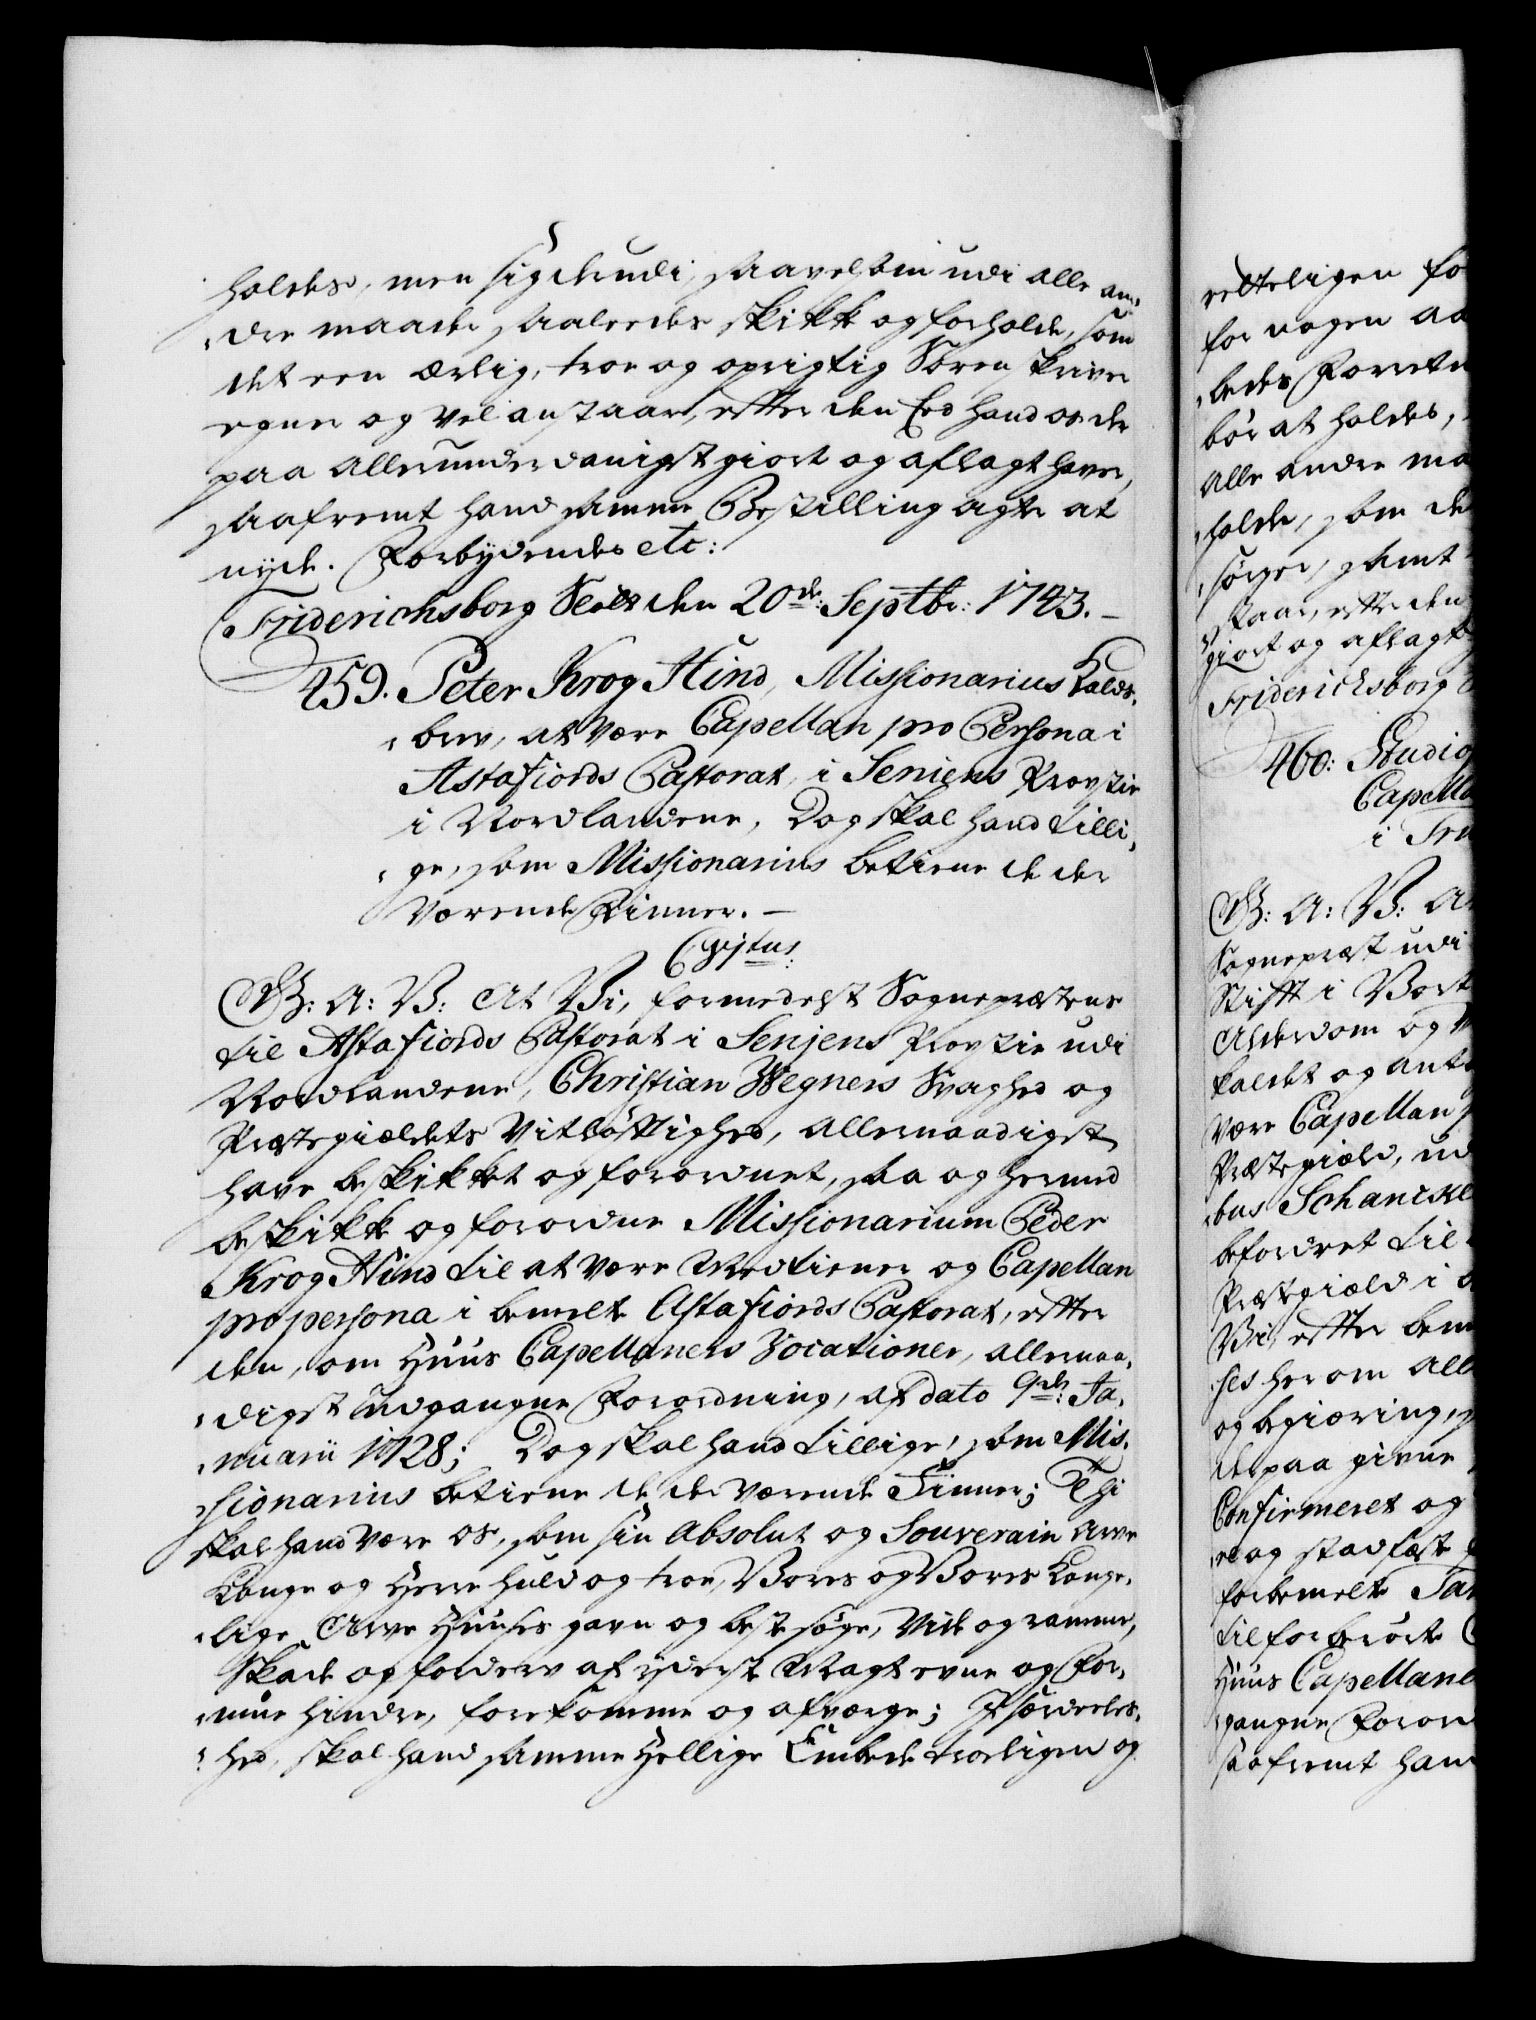 holdes, men sig derudi, saavelsom udi alle an„
„dre maader saaledes skikke og forholde, som
det een ærlig, troe og oprigtig Sorenskriver
egner og vel anstaar, efter den Eed hand os der
paa allerunderdanigst giort og aflagt haver,
saafremt hand samme Bestilling agter at
nyde. Forbydendes etc:
Friderichsborg Slott den 20de: Septbr: 1743.–
459. Peter Krog Hind, Missionarius Kalds„
„brev, at være Capellan pro Persona i
Astafiords Pastorat, i Seniens Provstie
i Nordlandene, Dog skal hand tilli„
„ge, som Missionarius betiene de der
værende Finner.–
C 6tus:
G: A: V: At Vi, formedelst Sogneprestens
til Astafiords Pastorat i Senjens Provstie udi
Nordlandene, Christian Wegners Svaghed og
Præstegieldets Vitløftighed, allernaadigst
have beskikket og forordnet, saa og hermed
beskikke og forordne Missionarium Peder
Krog Hind til at være Medtiener og Capellan
pro persona i bemelte Astafiords Pastorat, efter
den, om Huus Capellaners Vocationer, allernaa„
„digst udgangne Forordning, af dato 9de: Ja„
„nuarii 1728; Dog skal hand tillige, som Mis„
„sionarius betiene de der værende Finner; Thi
skal hand være os, som sin Absolut og Souverain Arve
Konge og Herre huld og troe, Vores og Vores Konge„
„lige Arve Huuses gavn og beste søge, vide og ramme,
Skade og forderv af yderste Magt evne og For„
„mue hindre, forekomme og afværge; I særdeeles„
„hed, skal hand samme Hellige Embede troeligen og
retteligen fo
for nogen aa
„bedes Forretn
bør at holdes,
alle andre ma
„holde, som de
„sørger, samt
staar, efter den
giort og aflagt
Friderichsborg
460: Studio
Capella
i Tru
G: A: V: A
Sogneprest udi
Stift i Vort
Alderdom og
kaldet og anta
være Capellan
Præstegield, ud
„bus Schancke
befordret til
Præstegield i
Vi, efter bem
„ses herom all
og begiæring,
derpaa givne
Confirmeret og
„re og stadfæste
forbemelte Ja
til forbørte
Huus Capellane
„gangne Foror
saafremt han